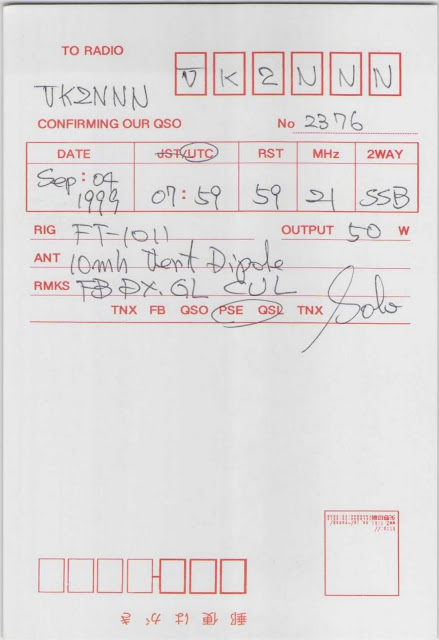 TO RADIO VK2NNN
VK2NNN
CONFIRMING OUR QSO No 2376
DATE JST/UTC RST MHz 2WAY
Sep: 04 1999 07:59 59 21 SSB
RIG FT-1011 OUTPUT 50 W
ANT 10mh Vert Dipole
RMKS FB DX. GL CUL
TNX FB QSO PSE QSL TNX
郵便はがき